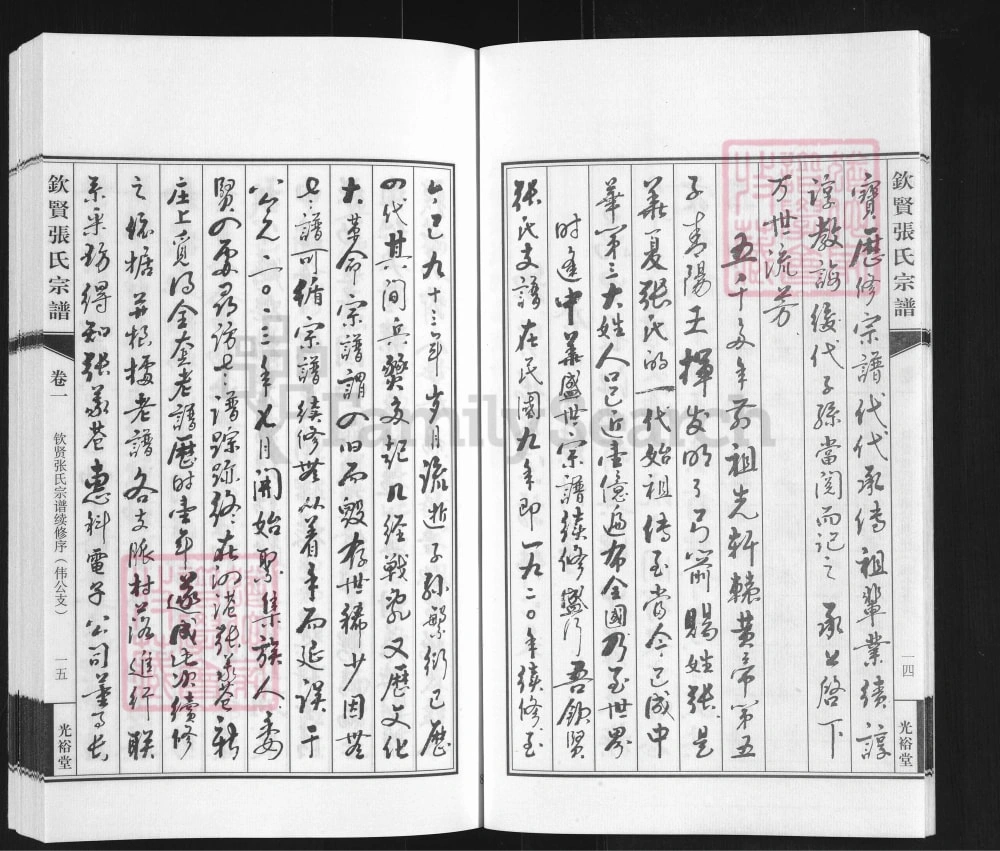 欽賢張氏宗譜
一四
光裕堂
寶歷修宗譜代代承傳祖輩業績諄
諄教誨後代子孫當閱而記之承上啓下
万世流芳
五千多年前祖先軒轅黄帝第五
子青陽王揮发明了弓箭賜姓張是
華夏張氏的一代始祖傳至當今已成中
華第三大姓人口已近壹億遍布全國乃至世界
时逢中華盛世宗譜續修盛行吾欽賢
張氏支譜在民國九年即一九二〇年續修至
今已九十三年岁月流逝子孙繁衍已歷
四代其间兵燹多起几经戰亂又歷文化
大革命宗譜謂四旧而毁存世稀少因無
老譜可循宗譜續修無从着手而延误于
公元二〇一三年七月開始聚集族人委
賢四處尋访老譜踪跡終在河港張家苍新
庄上覓得全套老譜歷时壹年遂成此次續修
之根据并根據老譜各支脈村落進行联
系采访得知張家苍惠科電子公司董事长
欽賢張氏宗譜
卷一
钦贤张氏宗谱续修序（伟公支）
一五
光裕堂
FamilySearch